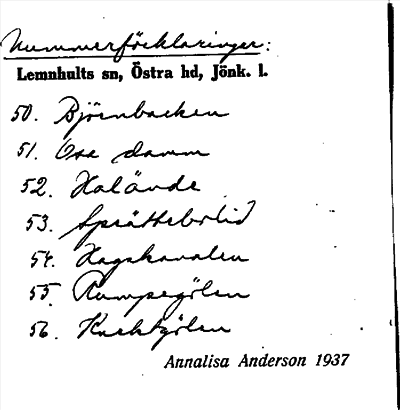 Nummerförklaringer:
Lemnhults sn, Östra hd, Jönk. l.
50. Björnbacken
51. Ose damm
52. Halände
53.
54. Hagskanalen
55. Rumpegölen
56. Knektgölen
Annalisa Anderson 1937